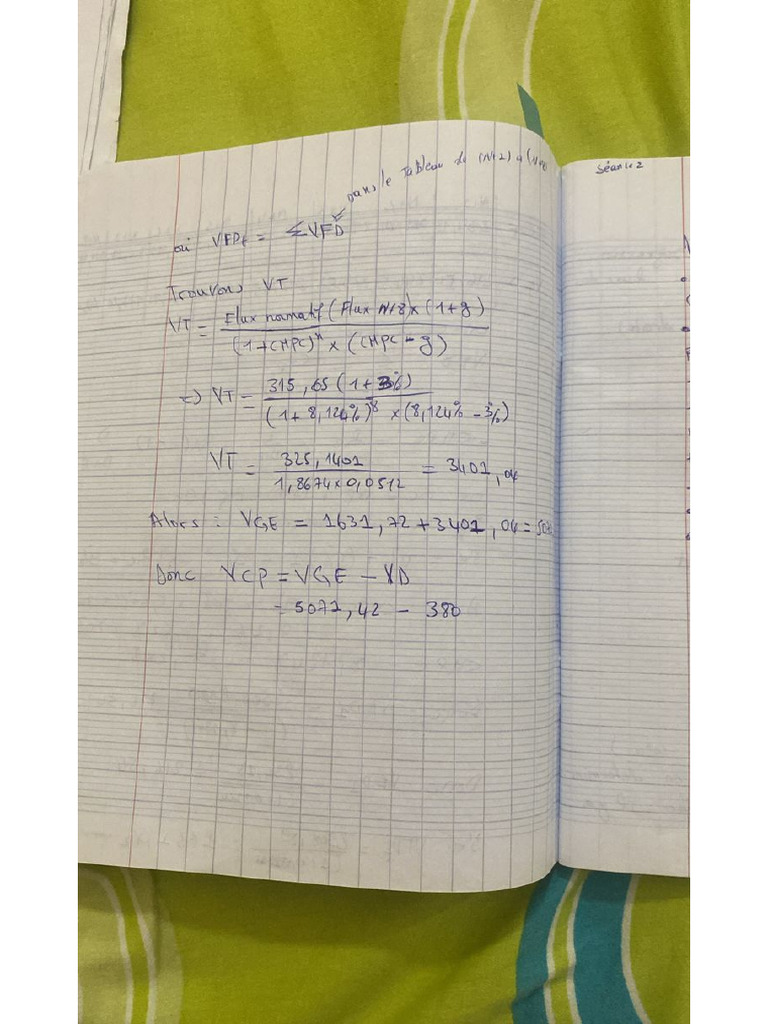 dans le Tableau de (N+2) à (N+8
Séance 2
où VFDt = ΣVFD
Trouvons VT
VT = Flux normatif (Flux N+8) x (1+g) / (1+CMPC)^n x (CMPC - g)
=> VT = 315,65 (1+3%) / (1+8,124%)^8 x (8,124% - 3%)
VT = 325,1401 / 1,8674x0,0512 = 3401,04
Alors : VGE = 1631,72 + 3401,04 =
Donc VCP = VGE - VD
= 5072,42 - 380